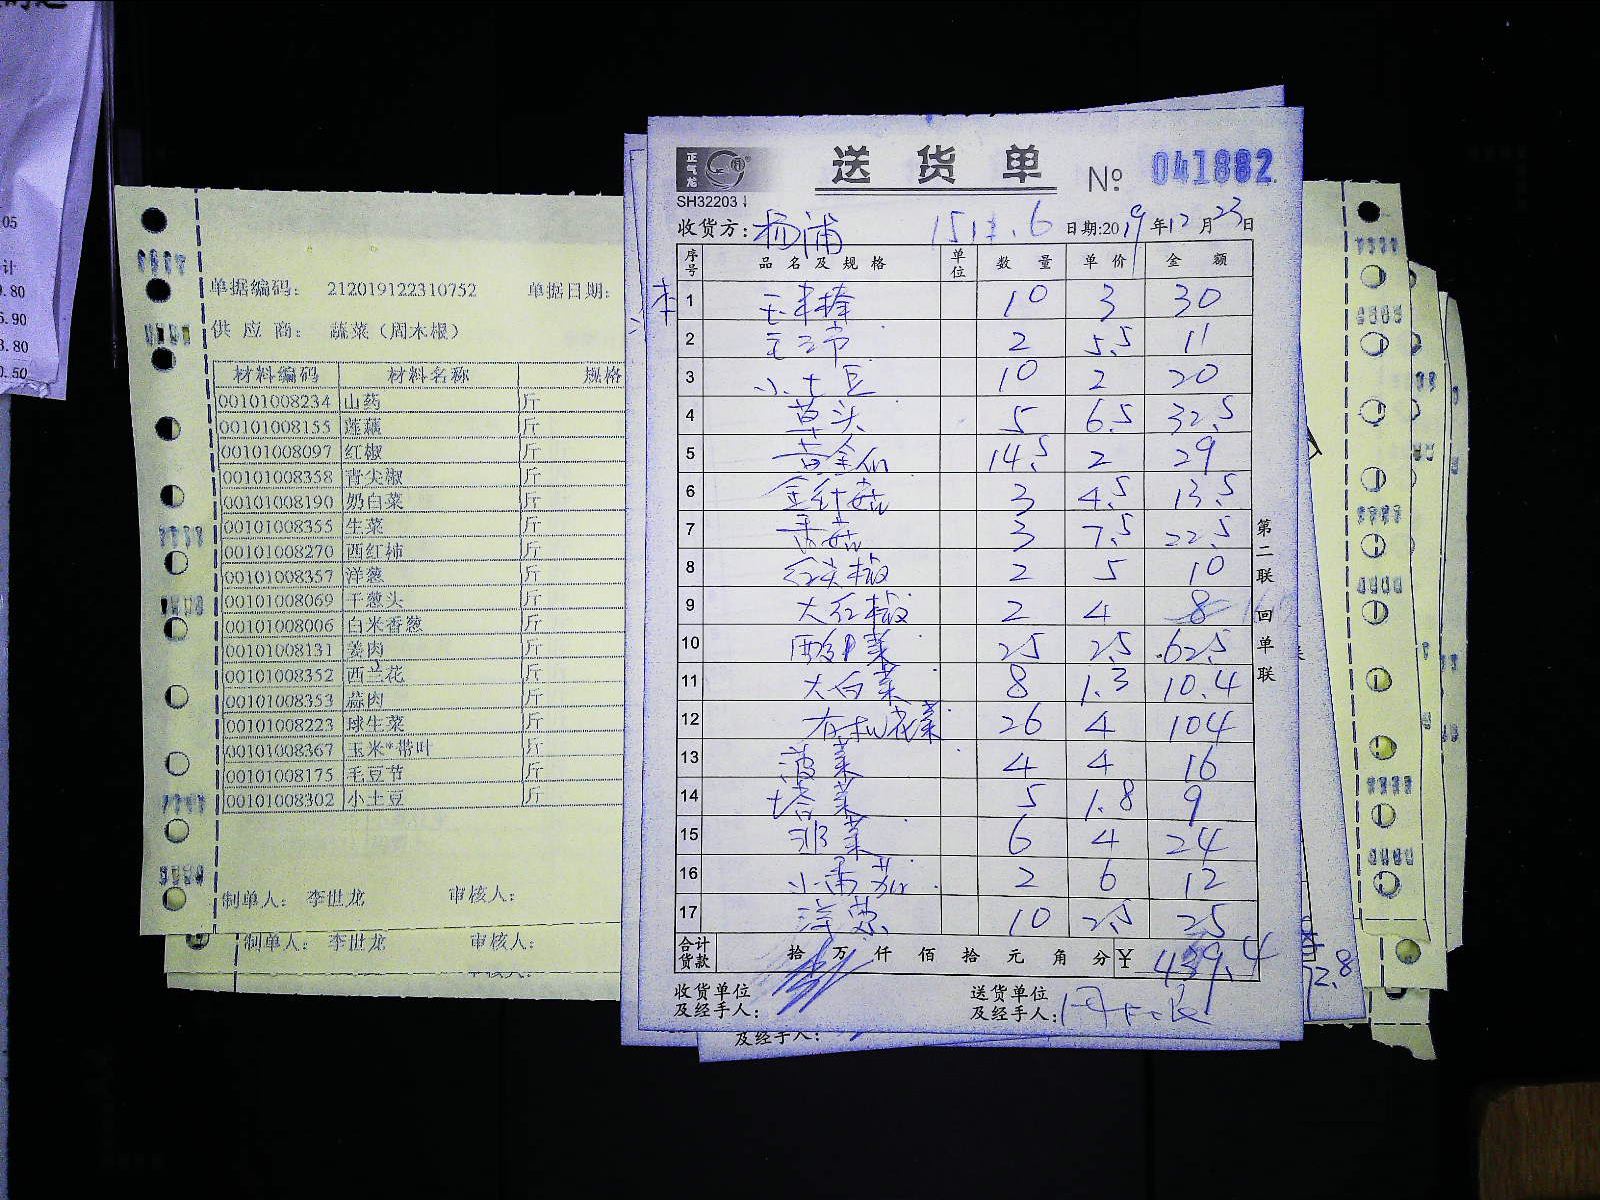 05
计
9.80
5.90
3.80
0.50
单据编码: 212019122310752 单据日期:
供 应 商: 蔬菜（周木根）
材料编码 材料名称 规格
00101008234 山药 斤
00101008155 莲藕 斤
00101008097 红椒 斤
00101008358 青尖椒 斤
00101008190 奶白菜 斤
00101008355 生菜 斤
00101008270 西红柿 斤
00101008357 洋葱 斤
00101008069 干葱头 斤
00101008006 白米香葱 斤
00101008131 姜肉 斤
00101008352 西兰花 斤
00101008353 蒜肉 斤
00101008223 球生菜 斤
00101008367 玉米*带叶 斤
00101008175 毛豆节 斤
00101008302 小土豆 斤
制单人: 李世龙 审核人:
制单人: 李世龙 审核人:
审核人:
正气龙
送 货 单 № 041882
SH32203
收货方: 杨浦 日期:2019年12月23日
序号 品 名 及 规 格 单位 数 量 单 价 金 额
1 玉米棒 10 3 30
2 毛豆节 2 5.5 11
3 小土豆 10 2 20
4 草头 5 6.5 32.5
5 黄金瓜 14.5 2 29
6 金针菇 3 4.5 13.5
7 香菇 3 7.5 22.5
8 红尖椒 2 5 10
9 大红椒 2 4 8
10 25 2.5 62.5
11 大白菜 8 1.3 10.4
12 有机花菜 26 4 104
13 菠菜 4 4 16
14 塔菜 5 1.8 9
15 6 4 24
16 小番茄 2 6 12
17 10 2.5 25
合计货款 拾 万 仟 佰 拾 元 角 分 ¥ 439.4
收货单位 送货单位
及经手人: 及经手人:
第二联 回单联
及经手人:
72.8